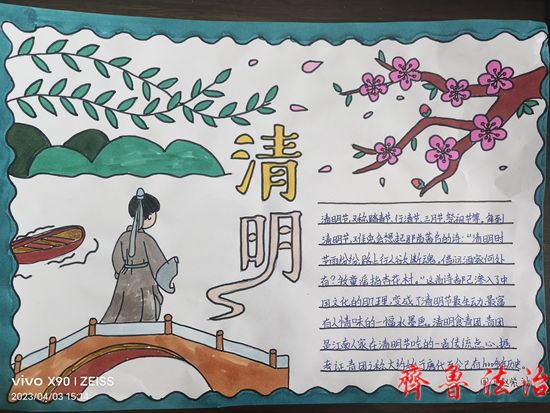 清
明
清明节,又称踏青节、行清节、三月节、祭祖节等,每到
清明节,人们总会想起那首著名的诗:"清明时
节雨纷纷,路上行人欲断魂。借问酒家何处
有?牧童遥指杏花村。"这首诗都已渗入了中
国文化的肌理,变成了清明节最生动、最富
有人情味的一幅水墨画。清明食青团,青团
是江南人家在清明节吃的一道传统点心,据
考证,青团之称大约始于唐代,至今已有1000多年历史
vivo X90 | ZEISS
2023/04/03 15:14
齐鲁法治